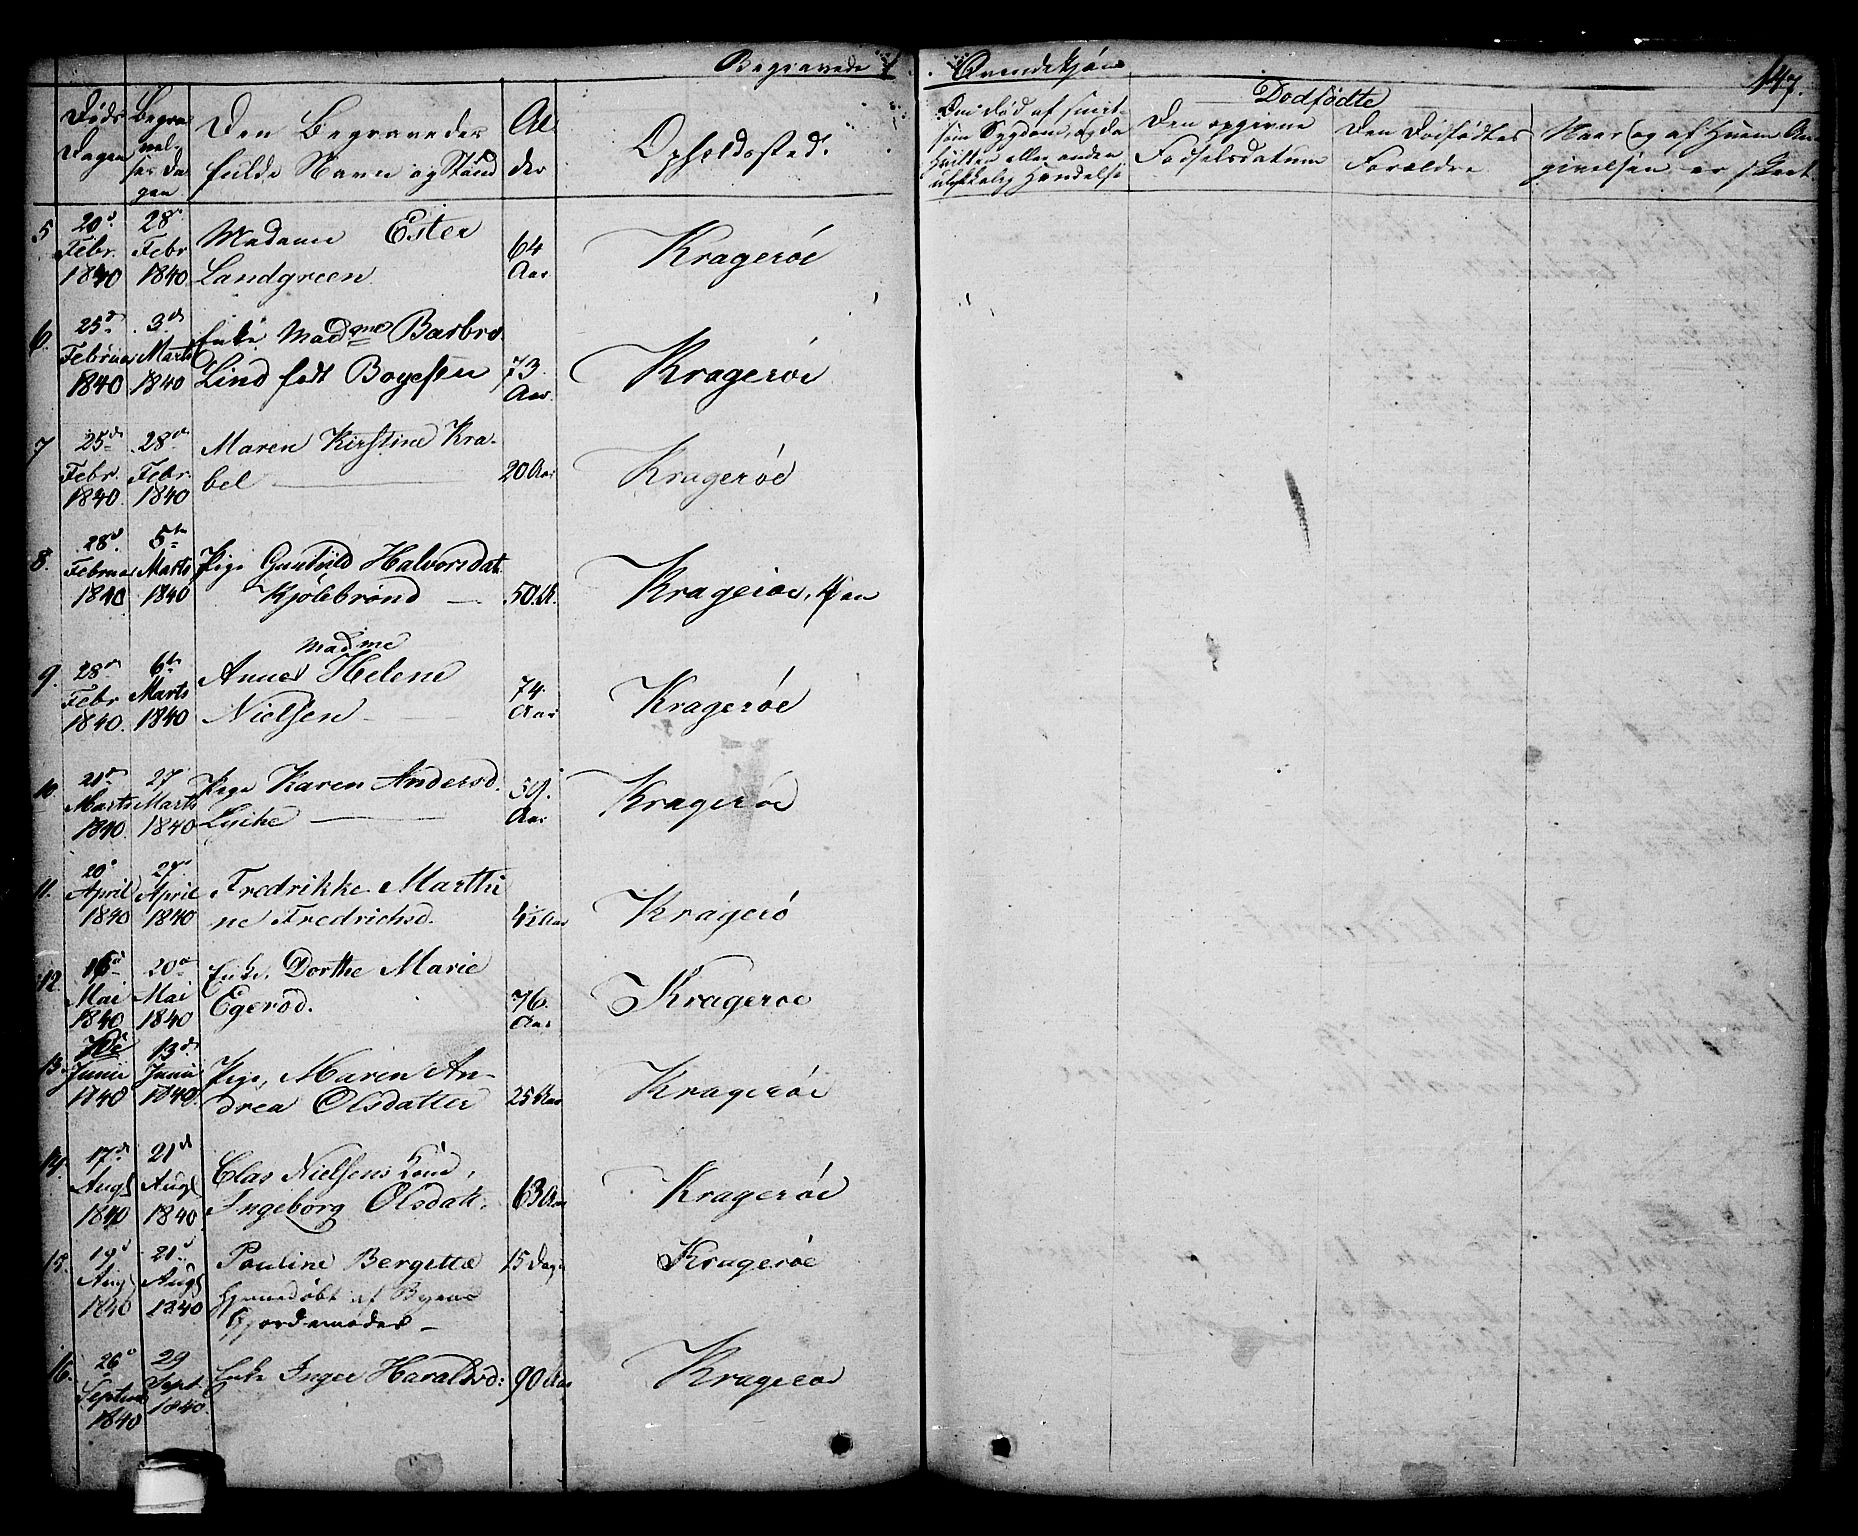 Begravede
Qvindekjøn
147.
Døds
Dagen
Begra
vel-
ses Da
gen
Den Begravedes
fulde Navn og Stand
Al
der
Opholdssted.
Om død af smit-
som Sygdom, og da
hvilken eller anden
ulykkelig Hændelse
Dødfødte
Den opgivne
Fødselsdatum
Den Dødfødtes
Forældre
Naar og af Hvem An
givelsen er skeet
5 20de Febr. 1840 28de Febr 1840 Madame Ester
Landgreen 64 Aar Kragerøe
6. 25de Februar 1840 3de Marts 1840 Enke Madme Barbro
Lind født Boyesen 73 Aar. Kragerøe
7 25de Febr. 1840. 28de Febr. 1840 Maren Kirstine Kra-
bel 20 Aar Kragerøe
8. 28de Februar 1840 5te Marts 1840 Pige Gunhild Halvorsdat.
Kjølebrønd 50.A. Kragerøe,
9. 28de Febr 1840. 6te Marts 1840 Madme
Anne Helene
Nielsen 74 Aar Kragerøe
10. 21de Marts 1840. 27 Marts 1840 Pige Karen Andersd.
Lycke 59. Aar Kragerøe
11. 20de April 1840 27de April 1840 Fredrikke Marthi
ne Fredrichsd. 4½ Aar Kragerø
12. 16de Mai 1840 20de Mai 1840 Enke, Dorthe Marie
Egerød. 76 Aar Kragerøe
13. Junii 1840 13de Junii 1840. Pige, Maren An-
drea Olsdatter 25 Aar Kragerøe
14. 17de Augs 1840 21de Augs 1840 Clas Nielsens Kone,
Ingeborg Olsdatt. 63 Aar Kragerøe
15. 19de Augs 1840 21de Augs 1840 Pauline Bergette 15 Dage Kragerøe
Hjemmedøbt af Byens
Gjordemoder
16. 26de Septem 1840 29 Sept 1840. Enke Inger Haraldsd: 90 Aar Kragerøe